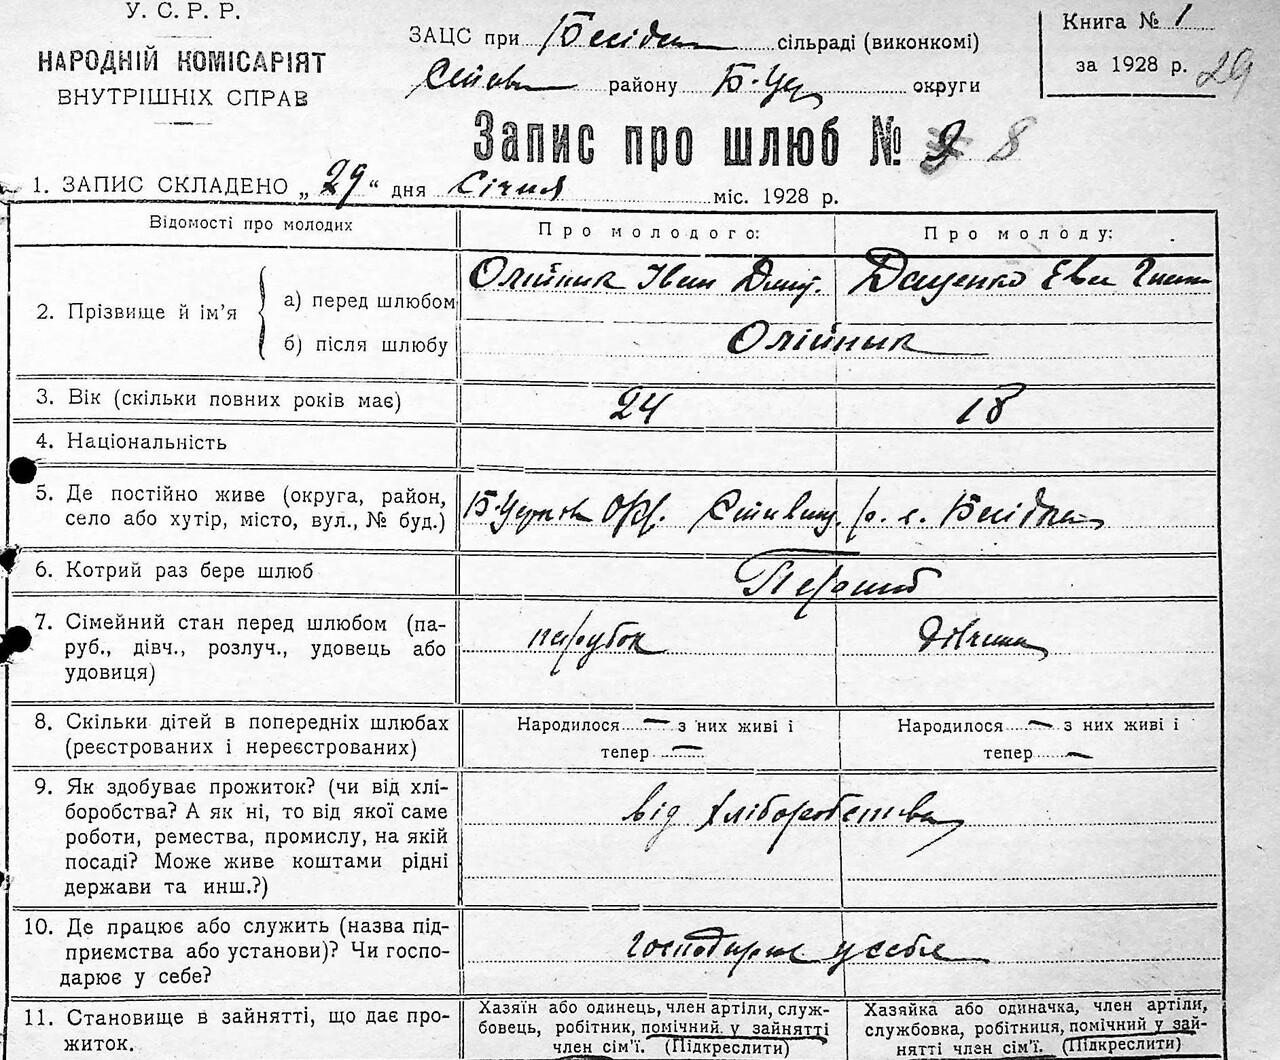 У. С. Р. Р.
НАРОДНІЙ КОМІСАРІЯТ
ВНУТРІШНІХ СПРАВ
ЗАЦС при Бесідк сільраді (виконкомі)
району Б-Цер округи
Книга № 1
за 1928 р. 29
Запис про шлюб № 8
1. ЗАПИС СКЛАДЕНО „29“ дня Січня міс. 1928 р.
Відомості про молодих
Про молодого:
Про молоду:
2. Прізвище й ім’я
а) перед шлюбом
Олійник Іван Дмит. Даценко Ева
б) після шлюбу
Олійник
3. Вік (скільки повних років має) 24 18
4. Національність
5. Де постійно живе (округа, район,
село або хутір, місто, вул., № буд.)
Б-Церков Окр. Ставищ. р. с. Бесідка
6. Котрий раз бере шлюб Перший
7. Сімейний стан перед шлюбом (па-
руб., дівч., розлуч., удовець або
удовиця)
парубок дівчина
8. Скільки дітей в попередніх шлюбах
(реєстрованих і нереєстрованих)
Народилося — з них живі і
тепер —
Народилося — з них живі і
тепер —
9. Як здобуває прожиток? (чи від хлі-
боробства? А як ні, то від якої саме
роботи, ремества, промислу, на якій
посаді? Може живе коштами рідні
держави та инш.?)
від хліборобства
10. Де працює або служить (назва під-
приємства або установи)? Чи госпо-
дарює у себе?
господарює у себе
11. Становище в зайнятті, що дає про-
житок.
Хазяїн або одинець, член артіли, служ-
бовець, робітник, помічний у зайнятті
член сім’ї. (Підкреслити)
Хазяйка або одиначка, член артіли,
службовка, робітниця, помічний у зай-
нятті член сім’ї. (Підкреслити)